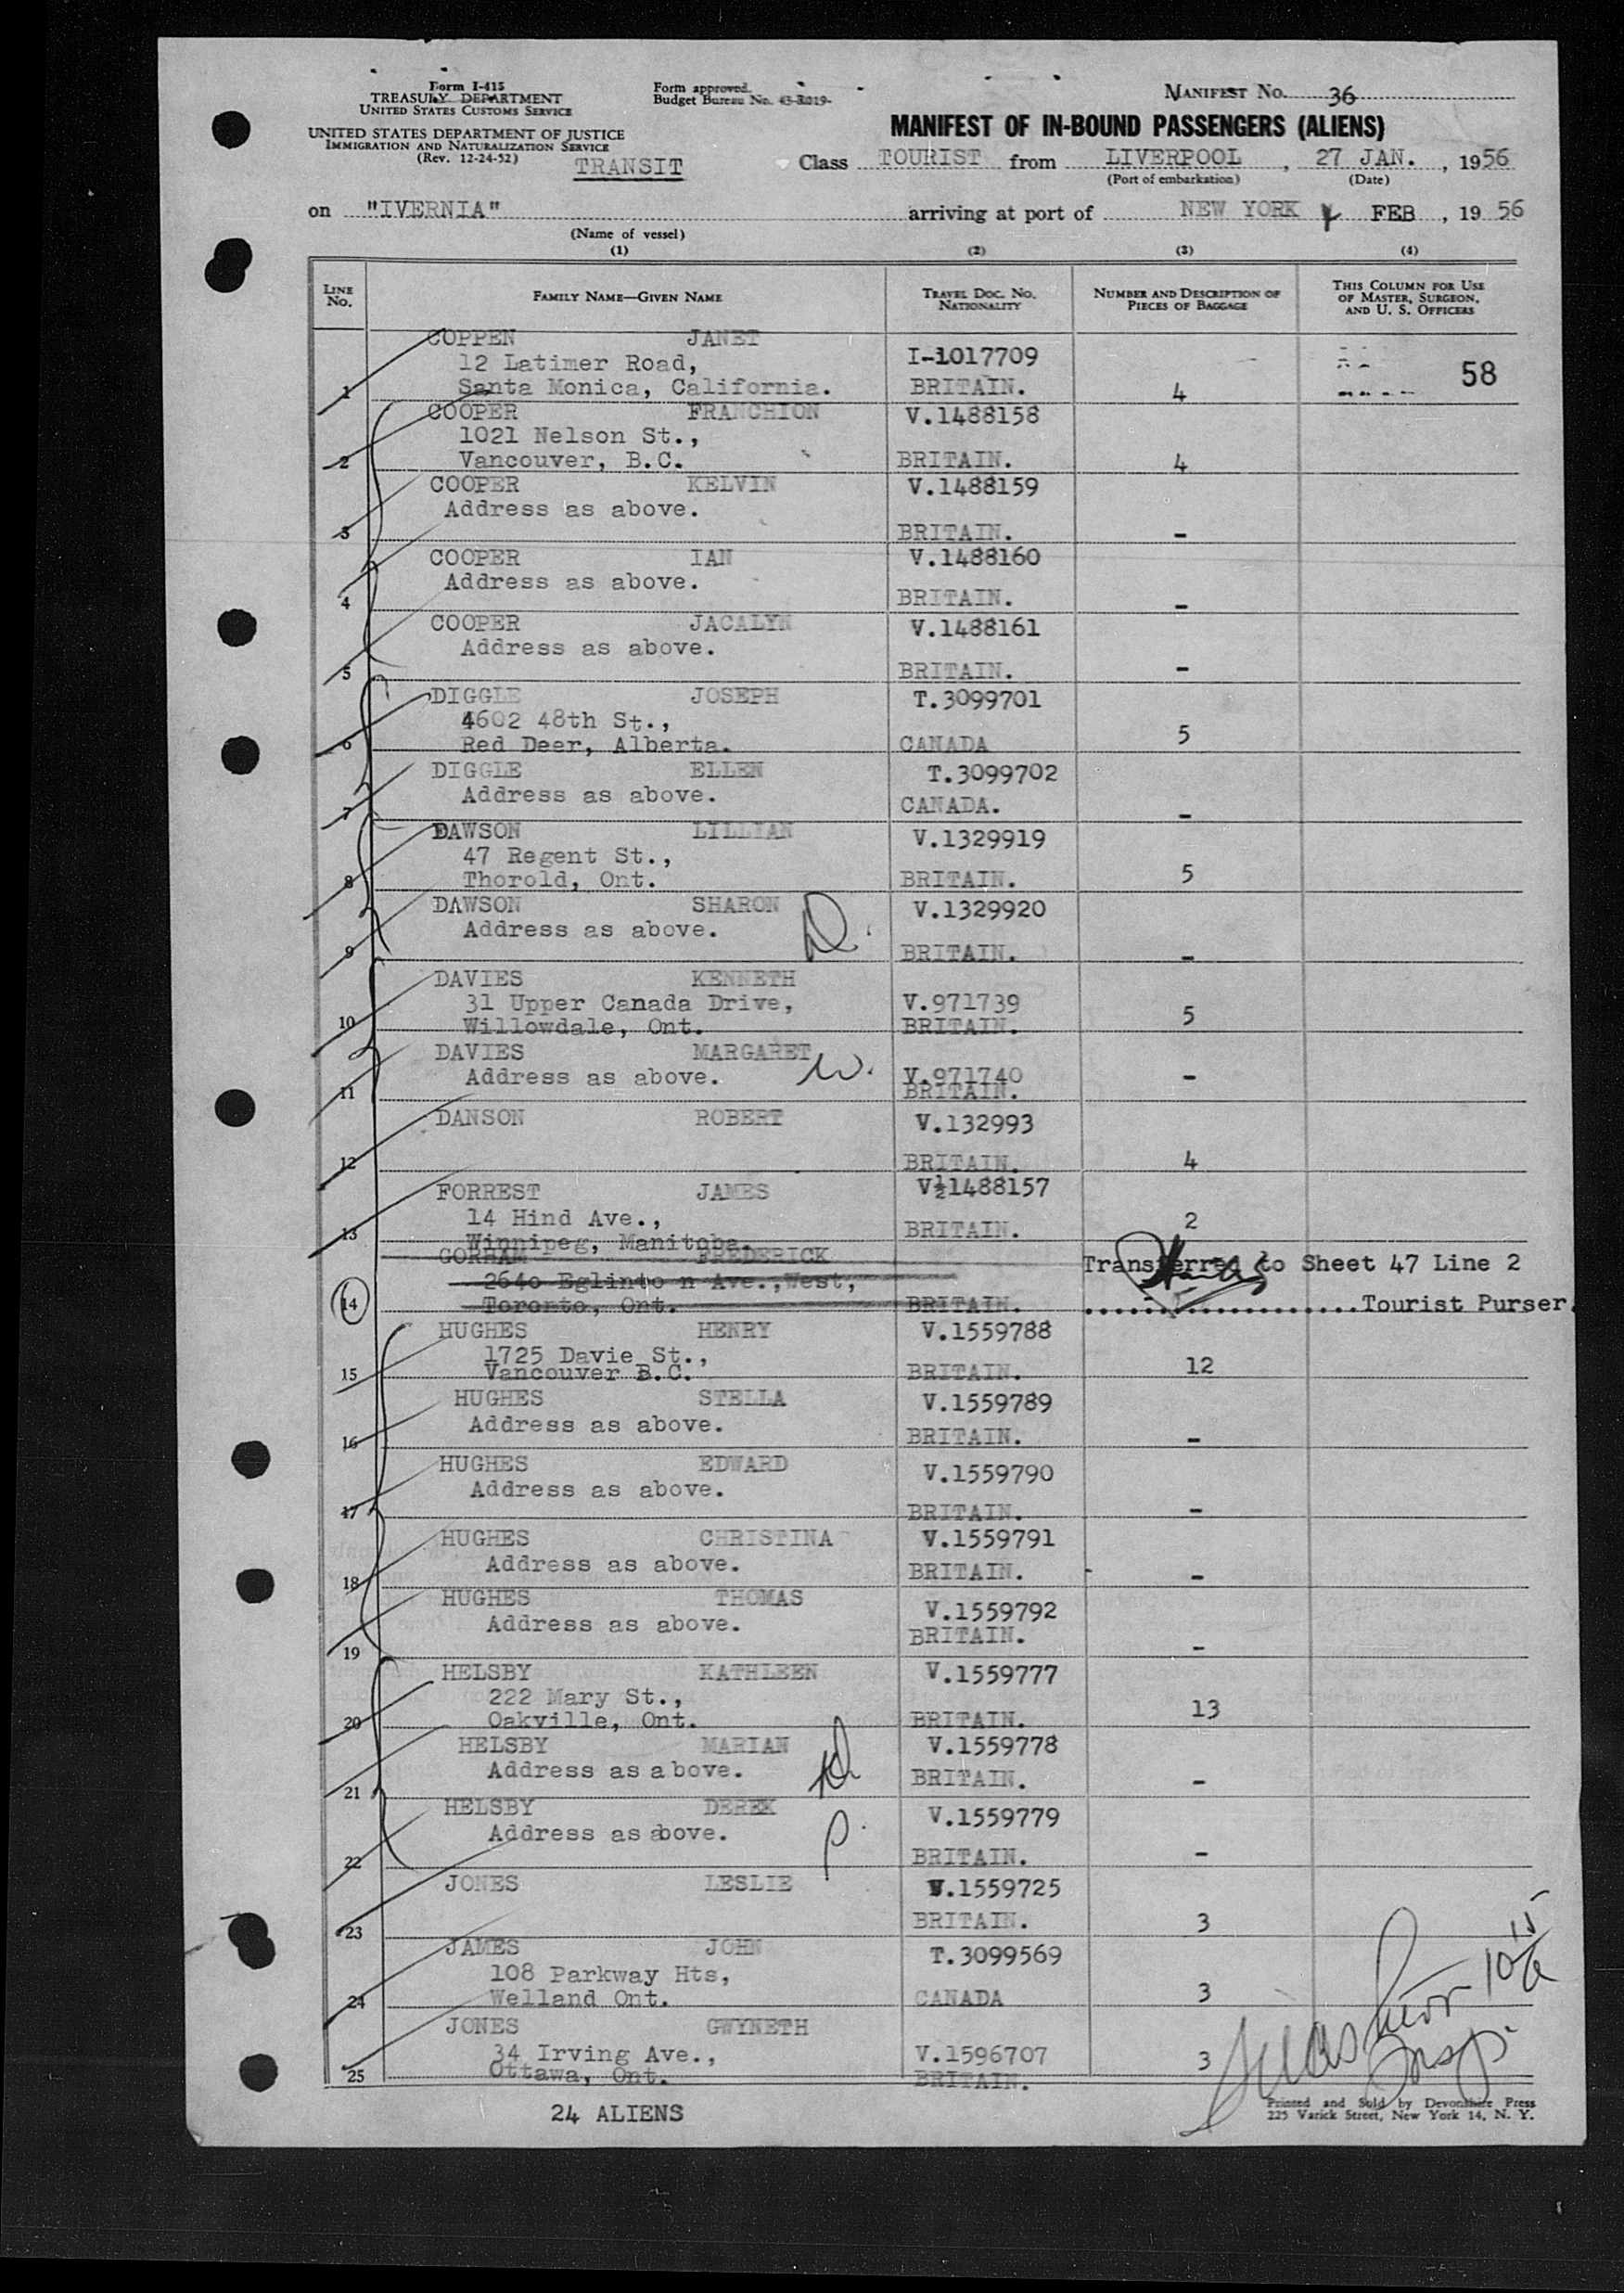 Form I-415
TREASURY DEPARTMENT
UNITED STATES CUSTOMS SERVICE
UNITED STATES DEPARTMENT OF JUSTICE
IMMIGRATION AND NATURALIZATION SERVICE
(Rev. 12-24-52)
TRANSIT
Form approved.
Budget Bureau No. 43-R019-
MANIFEST No. 36
MANIFEST OF IN-BOUND PASSENGERS (ALIENS)
Class TOURIST from LIVERPOOL, 27 JAN., 1956
(Port of embarkation) (Date)
on "IVERNIA" arriving at port of NEW YORK FEB, 19 56
(Name of vessel)
(1) (2) (3) (4)
LINE No. FAMILY NAME—GIVEN NAME TRAVEL DOC. No. NATIONALITY NUMBER AND DESCRIPTION OF PIECES OF BAGGAGE THIS COLUMN FOR USE OF MASTER, SURGEON, AND U. S. OFFICERS
COPPEN JANET
12 Latimer Road, I-1017709 58
1 Santa Monica, California. BRITAIN. 4
COOPER FRANCHION V.1488158
1021 Nelson St.,
2 Vancouver, B.C. BRITAIN. 4
COOPER KELVIN V.1488159
Address as above.
3 BRITAIN. -
COOPER IAN V.1488160
Address as above.
4 BRITAIN. -
COOPER JACALYN V.1488161
Address as above.
5 BRITAIN. -
DIGGLE JOSEPH T.3099701
4602 48th St.,
6 Red Deer, Alberta. CANADA 5
DIGGLE ELLEN T.3099702
Address as above.
7 CANADA. -
DAWSON LILLIAN V.1329919
47 Regent St.,
8 Thorold, Ont. BRITAIN. 5
DAWSON SHARON V.1329920
Address as above.
9 BRITAIN. -
DAVIES KENNETH
31 Upper Canada Drive, V.971739
10 Willowdale, Ont. BRITAIN. 5
DAVIES MARGARET W.
Address as above. V.971740 -
11 BRITAIN.
DANSON ROBERT V.132993
12 BRITAIN. 4
FORREST JAMES V½1488157
14 Hind Ave.,
13 Winnipeg, Manitoba. BRITAIN. 2
GORHAM FREDERICK Transferred to Sheet 47 Line 2
2640 Eglinto n Ave.,West,
14 Toronto, Ont. BRITAIN. ....................Tourist Purser.
HUGHES HENRY V.1559788
1725 Davie St.,
15 Vancouver B.C. BRITAIN. 12
HUGHES STELLA V.1559789
Address as above.
16 BRITAIN. -
HUGHES EDWARD V.1559790
Address as above.
17 BRITAIN. -
HUGHES CHRISTINA V.1559791
Address as above.
18 BRITAIN. -
HUGHES THOMAS V.1559792
Address as above.
19 BRITAIN. -
HELSBY KATHLEEN V.1559777
222 Mary St.,
20 Oakville, Ont. BRITAIN. 13
HELSBY MARIAN V.1559778
Address as above.
21 BRITAIN. -
HELSBY DEREK V.1559779
Address as above.
22 BRITAIN. -
JONES LESLIE V.1559725
23 BRITAIN. 3
JAMES JOHN T.3099569
108 Parkway Hts,
24 Welland Ont. CANADA 3
JONES GWYNETH
34 Irving Ave., V.1596707 3
25 Ottawa, Ont. BRITAIN.
24 ALIENS
Insp.
Printed and Sold by Devonshire Press
225 Varick Street, New York 14, N. Y.